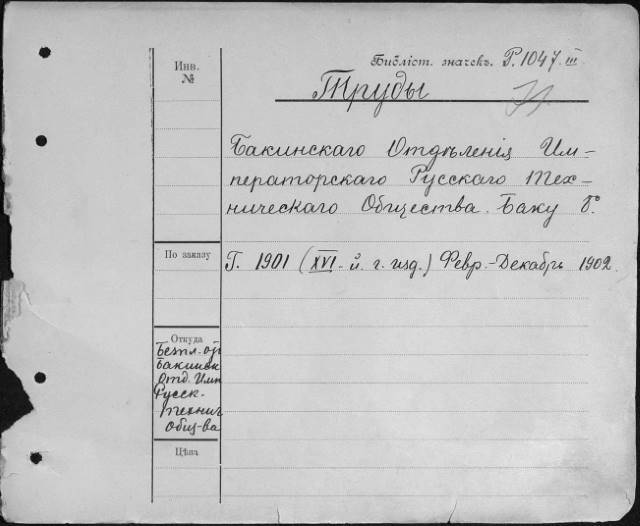 Инв.
№
Библіот. значекъ. Р. 1047. III.
Труды
Бакинскаго Отдѣленія Им-
ператорскаго Русскаго Тех-
ническаго Общества. Баку 8º.
По заказу
Г. 1901 (XVI-й. г. изд.) Февр.-Декабрь 1902.
Откуда
Безпл. от
Бакинск
Отд. Имп
Русск.
технич
общ-ва
Цѣна